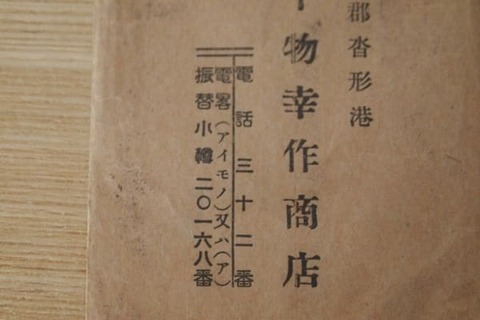 郡沓形港
物幸作商店
電話三十二番
電畧(アイモノ)又ハ(ア)
振替小樽二〇一六八番